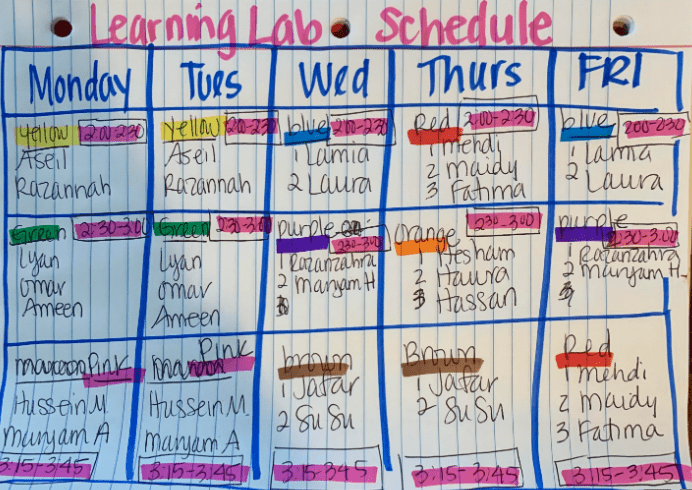 Learning Lab Schedule
Monday Tues Wed Thurs FRI
Yellow 2:00-2:30
Aseil
Razannah
Yellow 2:00-2:30
Aseil
Razannah
blue 2:00-2:30
1 Lamia
2 Laura
Red 2:00-2:30
1 mehdi
2 maidy
3 Fatima
blue 2:00-2:30
1 Lamia
2 Laura
Green 2:30-3:00
Lyan
omar
Ameen
Green 2:30-3:00
Lyan
omar
Ameen
purple
2:30-3:00
1 Razanzahra
2 Maryam H
3
orange 2:30-3:00
1 Hesham
2 Haura
3 Hassan
purple
2:30-3:00
1 Razanzahra
2 Maryam H
maroon Pink
Hussein M.
maryam A
3:15-3:45
Pink
maroon
Hussein M.
maryam A
3:15-3:45
brown
1 Jafar
2 SuSu
3:15-3:45
Brown
1 Jafar
2 SuSu
3:15-3:45
Red
1 mehdi
2 maidy
3 Fatima
3:15-3:45